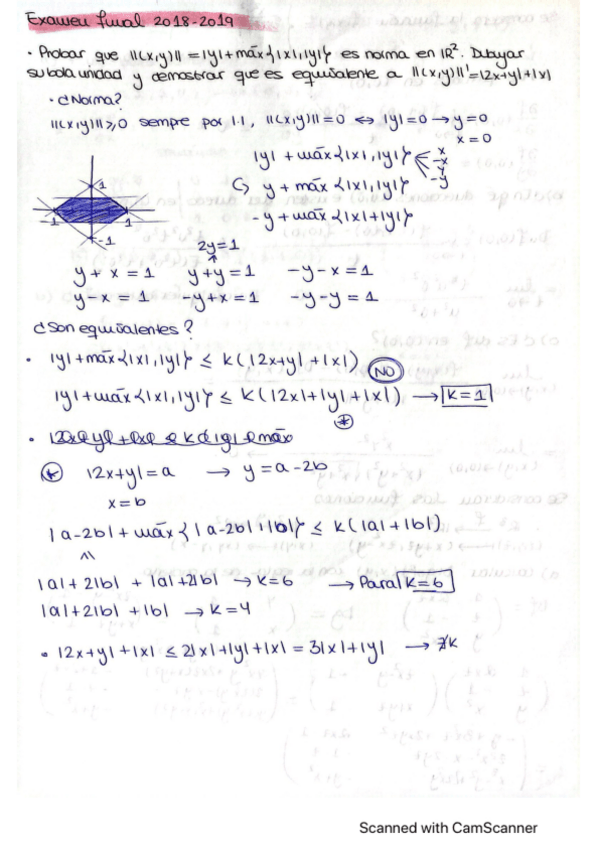 Examen final 2018-2019
• Probar que ||(x,y)|| = |y| + máx{|x|,|y|} es norma en ℝ². Dibujar
su bola unidad y demostrar que es equivalente a ||(x,y)||' = |2x+y| + |x|
• ¿Norma?
||(x,y)|| ≥ 0 siempre por |·|, ||(x,y)|| = 0 ↔ |y| = 0 → y = 0
x = 0
|y| + máx{|x|,|y|} x -x y -y
y + máx{|x|,|y|}
-y + máx{|x|+|y|}
1
-1 1
-1
2y = 1
y + x = 1 y + y = 1 -y - x = 1
y - x = 1 -y + x = 1 -y - y = 1
¿Son equivalentes?
• |y| + máx{|x|,|y|} ≤ k(|2x+y| + |x|) NO
|y| + máx{|x|,|y|} ≤ k(|2x| + |y| + |x|) → k = 1
*
* |2x+y| = a → y = a - 2b
x = b
|a-2b| + máx{|a-2b| + |b|} ≤ k(|a| + |b|)
|a| + 2|b| + |a| + 2|b| → k = 6 → Para k = 6
|a| + 2|b| + |b| → k = 4
• |2x+y| + |x| ≤ 2|x| + |y| + |x| = 3|x| + |y| →
Scanned with CamScanner